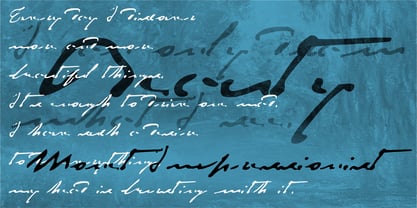 Every day I discover
more and more
beautiful things.
It's enough to drive one mad.
I have such a desire
to do everything,
my head is bursting with it.
I only
what I see.
Beauty
Monet Impressionist